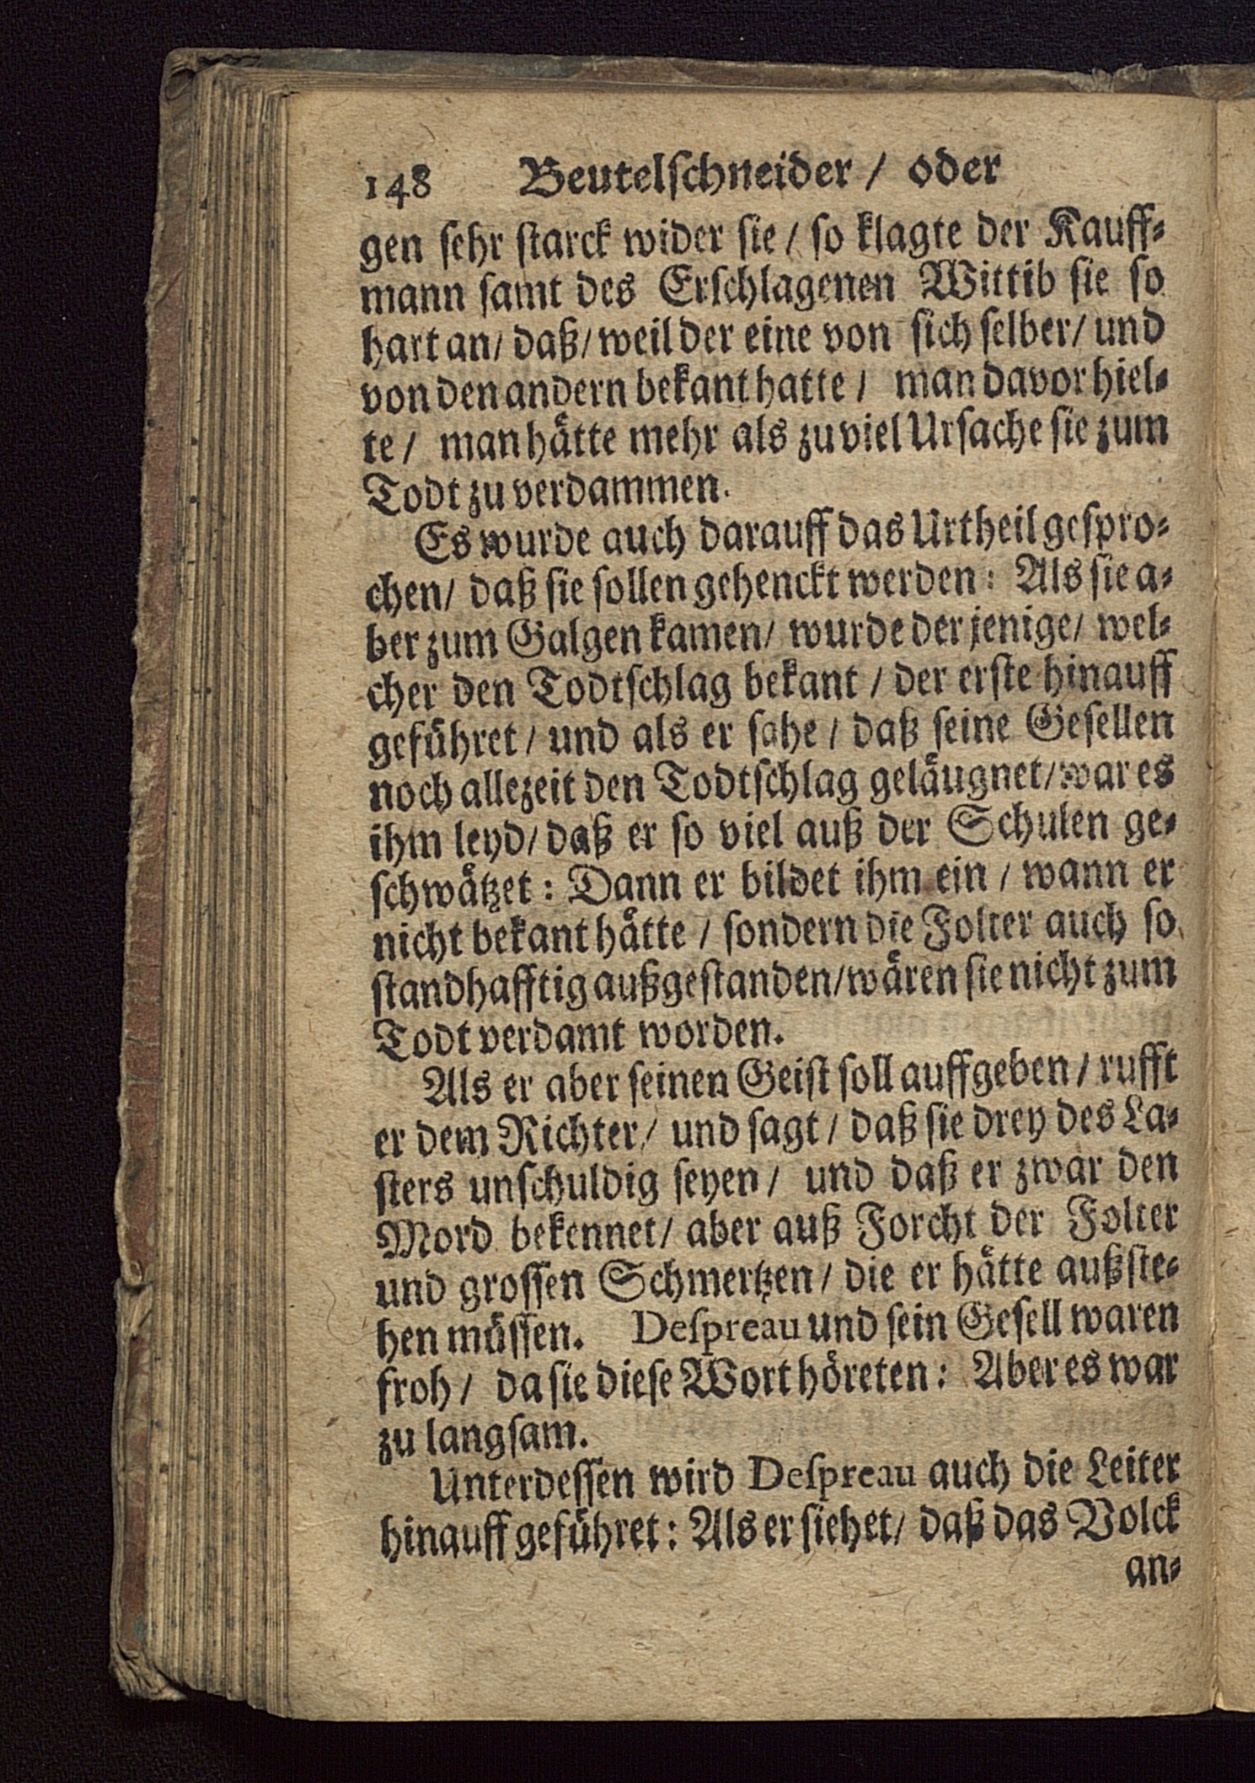 148 Beutelſchneider / oder
gen ſehr ſtarck wider ſie / ſo klagte der Kauff⸗
mann ſamt des Erſchlagenen Wittib ſie ſo
hart an / daß / weil der eine von ſich ſelber / und
von den andern bekant hatte / man davor hiel⸗
te / man hätte mehr als zu viel Urſache ſie zum
Todt zu verdammen.
Es wurde auch darauff das Urtheil geſpro⸗
chen / daß ſie ſollen gehenckt werden: Als ſie a⸗
ber zum Galgen kamen / wurde der jenige / wel⸗
cher den Todtſchlag bekant / der erſte hinauff
geführet / und als er ſahe / daß ſeine Geſellen
noch allezeit den Todtſchlag geläugnet / war es
ihm leyd / daß er ſo viel auß der Schulen ge⸗
ſchwätzet: Dann er bildet ihm ein / wann er
nicht bekant hätte / ſondern die Folter auch ſo
ſtandhafftig außgeſtanden / wären ſie nicht zum
Todt verdamt worden.
Als er aber ſeinen Geiſt ſoll auffgeben / rufft
er dem Richter / und ſagt / daß ſie drey des La⸗
ſters unſchuldig ſeyen / und daß er zwar den
Mord bekennet / aber auß Forcht der Folter
und groſſen Schmertzen / die er hätte außſte⸗
hen müſſen. Deſpreau und ſein Geſell waren
froh / da ſie dieſe Wort höreten: Aber es war
zu langſam.
Unterdeſſen wird Deſpreau auch die Leiter
hinauff geführet: Als er ſiehet / daß das Volck
an⸗